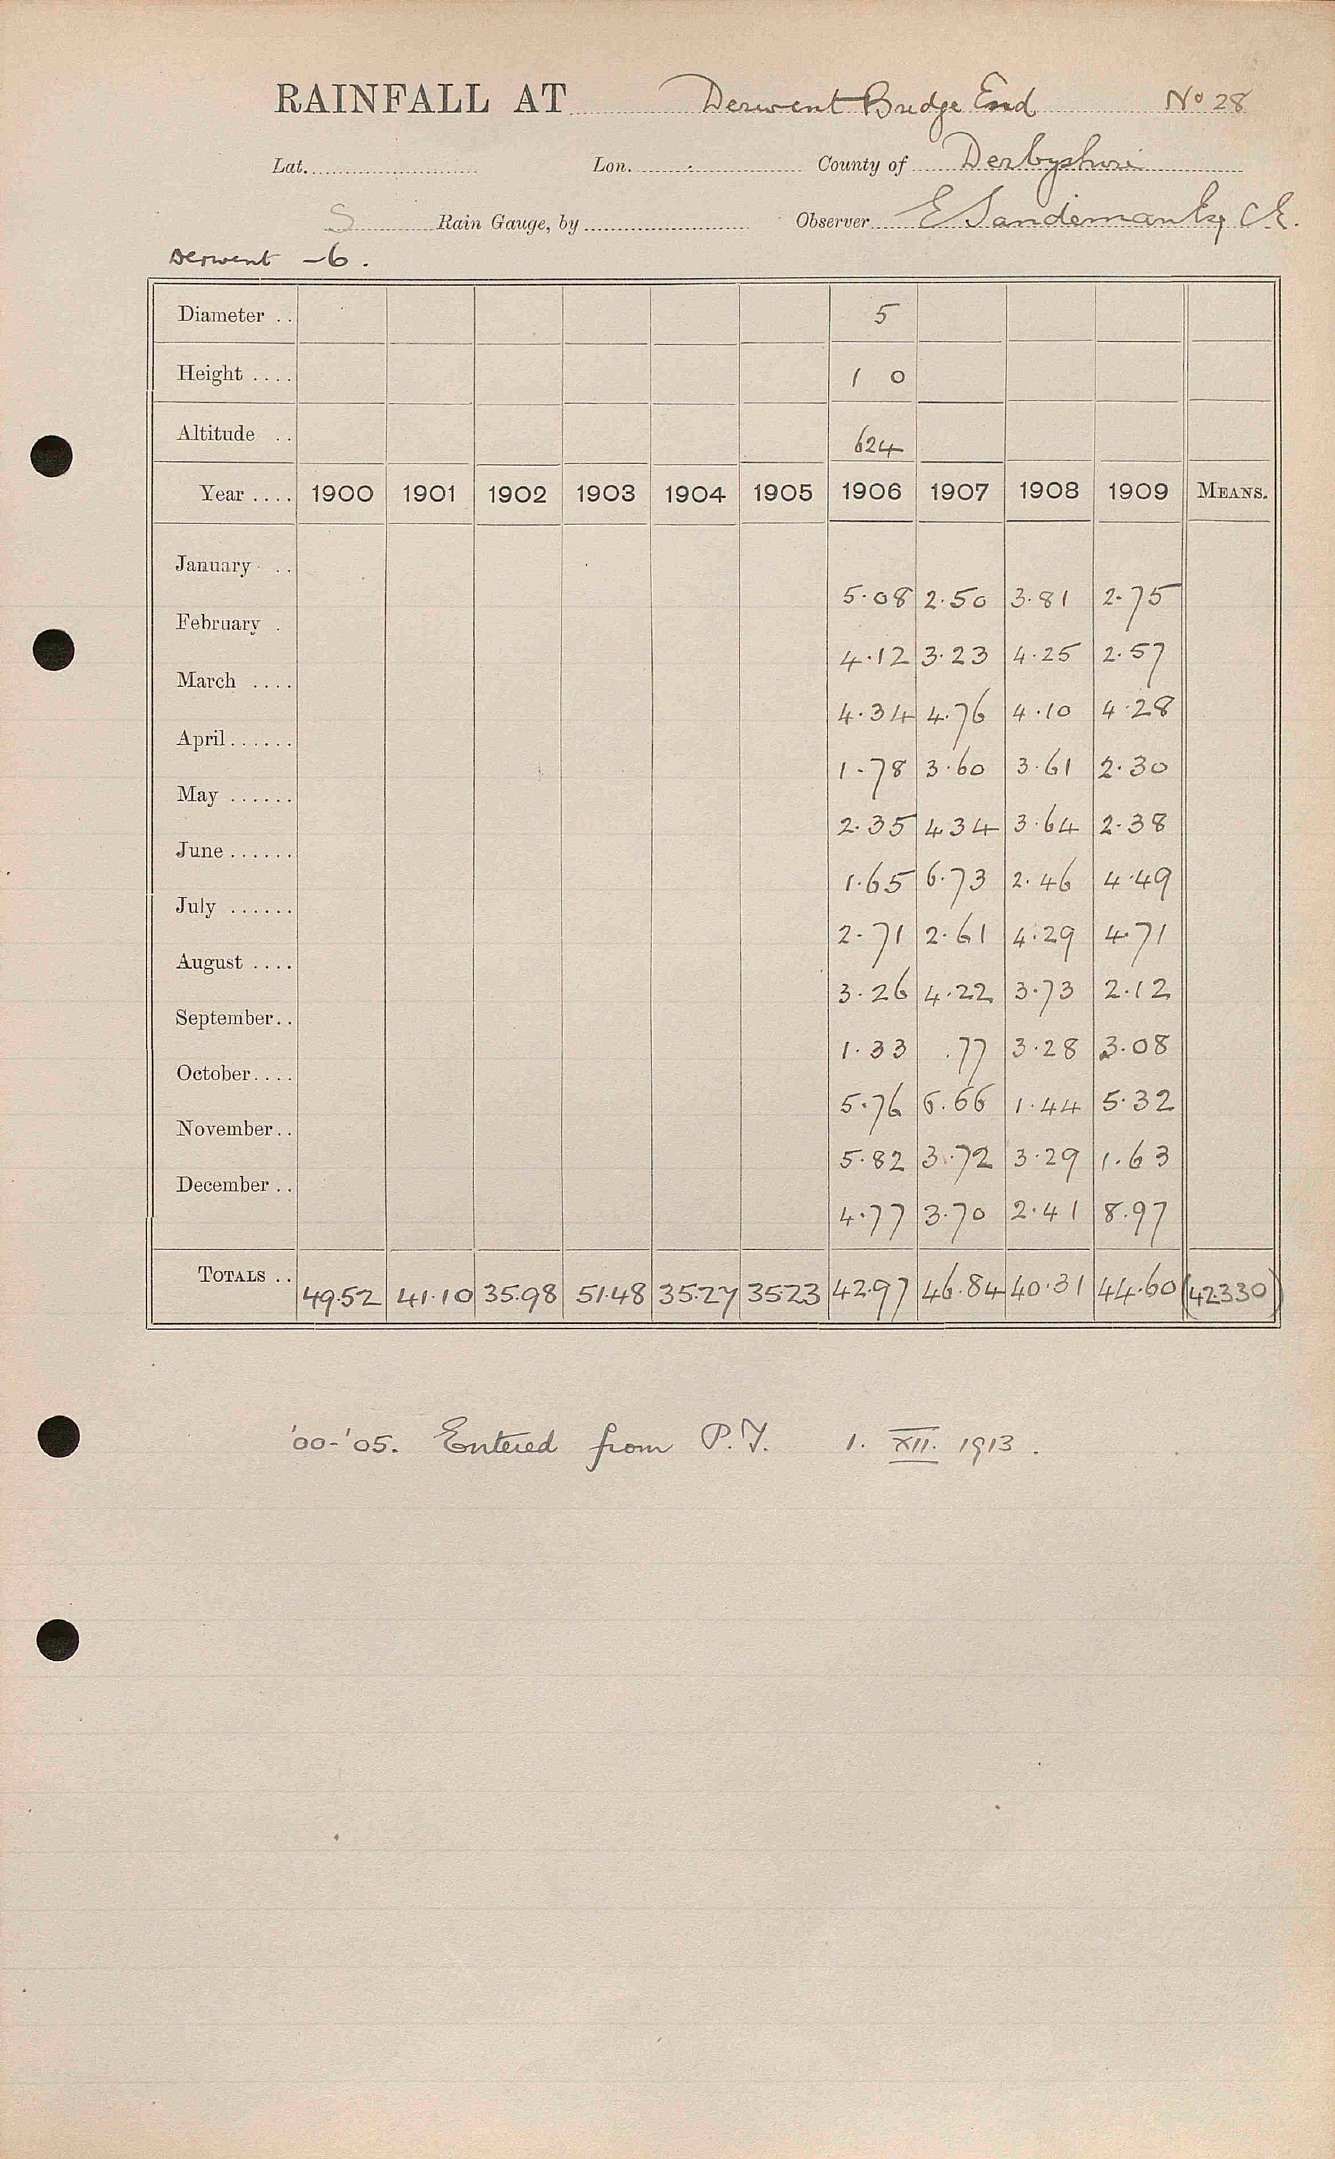 RAINFALL AT Derwent Bridge End No 28
Lat. Lon. County of Derbyshire
S Rain Gauge, by Observer E Sandeman Esq C.E.
Derwent -6.
Diameter .. 5
Height .... 1 0
Altitude .. 624
Year .... 1900 1901 1902 1903 1904 1905 1906 1907 1908 1909 MEANS.
January .. 5.08 2.50 3.81 2.75
February . 4.12 3.23 4.25 2.57
March .... 4.34 4.76 4.10 4.28
April...... 1.78 3.60 3.61 2.30
May ...... 2.35 4 34 3.64 2.38
June...... 1.65 6.73 2.46 4.49
July ...... 2.71 2.61 4.29 4.71
August .... 3.26 4.22 3.73 2.12
September.. 1.33 .77 3.28 3.08
October.... 5.76 6.66 1.44 5.32
November.. 5.82 3.72 3.29 1.63
December .. 4.77 3.70 2.41 8.97
TOTALS .. 49.52 41.10 35.98 51.48 35.27 35.23 42.97 46.84 40.31 44.60 (42.330)
'00-'05. Entered from P.Y. 1. XII. 1913.